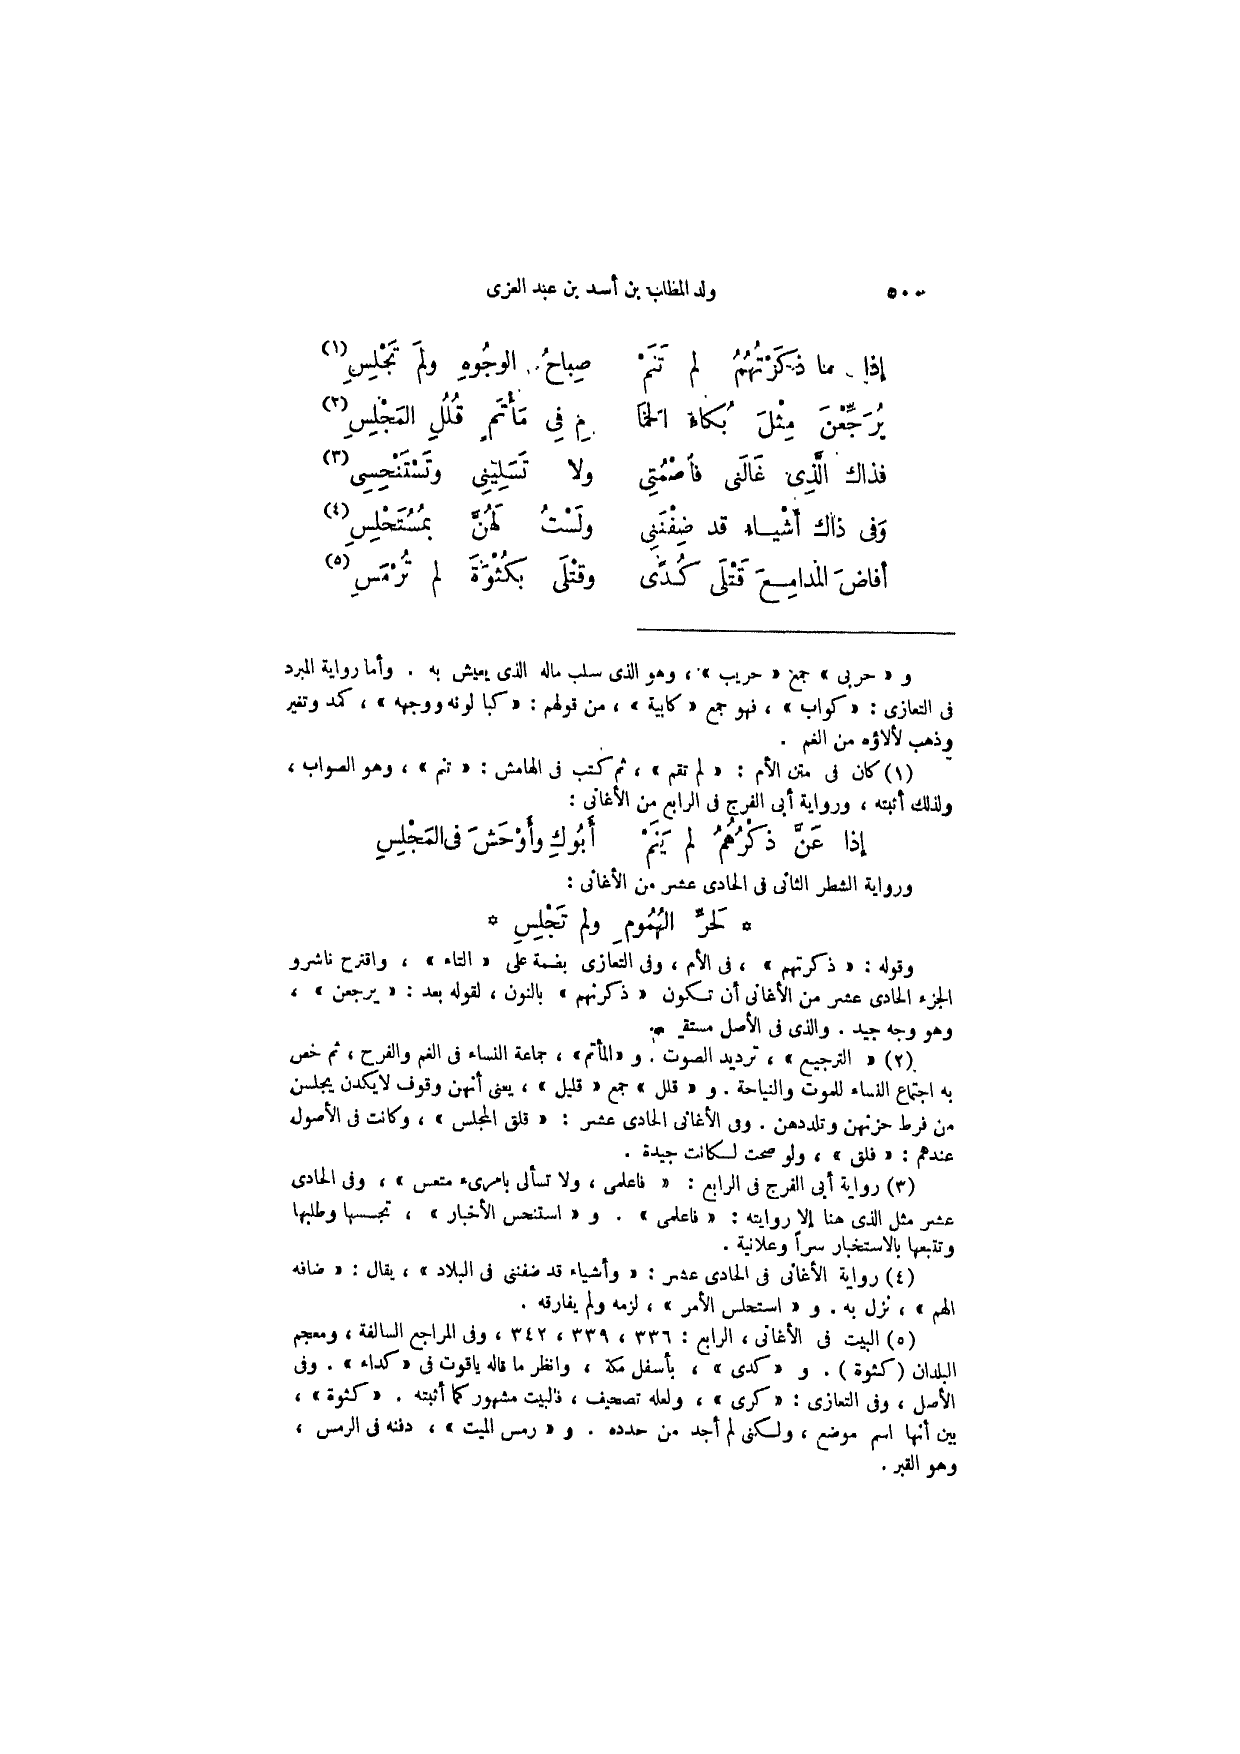 ٥٠٠ ولد المطلب بن أسد بن عبد العزى
إذا ما ذكَرْتُهُمُ لم تَنَمْ صِباحُ الوجُوهِ ولَم تَجْلِسِ(١)
يُرَجِّعْنَ مِثْلَ بُكاء الحَمَا مِ فِى مَأْتَمٍ قُلُلِ المَجْلِسِ(٢)
فذاك الَّذِى غَالَنى فاصْمُتِى ولا تَسَلِينِى وتَسْتَنْحِسِى(٣)
وَفى ذاك أشْياء قد ضِفْنَنِى ولَسْتُ لَهُنَّ بمُسْتَحْلِسِ(٤)
أفاضَ المدامِعَ قَتْلَى كُدًى وقَتْلَى بكُثْوَةَ لم تُرْمَسِ(٥)
و « حربى » جمع « حريب » ، وهو الذى سلب ماله الذى يعيش به . وأما رواية المبرد
فى التعازى : « كواب » ، فهو جمع « كابية » ، من قولهم : « كبا لونه ووجهه » ، كمد وتغير
وذهب لألاؤه من الغم .
(١) كان فى متن الأم : « لم تقم » ، ثم كتب فى الهامش : « تنم » ، وهو الصواب ،
ولذلك أثبته ، ورواية أبى الفرج فى الرابع من الأغانى :
إذا عَنَّ ذكْرُهُمُ لم يَنَمْ أَبُوكِ وأَوْحَشَ فى المَجْلِسِ
ورواية الشطر الثانى فى الحادى عشر من الأغانى :
* لَحرِّ الهُمُومِ ولم تَجْلِسِ *
وقوله : « ذكرتهم » ، فى الأم ، وفى التعازى بضمة على « التاء » ، واقترح ناشرو
الجزء الحادى عشر من الأغانى أن تكون « ذكرنهم » بالنون ، لقوله بعد : « يرجعن » ،
وهو وجه جيد . والذى فى الأصل مستقيم .
(٢) « الترجيع » ، ترديد الصوت . و « المأتم » ، جماعة النساء فى الغم والفرح ، ثم خص
به اجتماع النساء للموت والنياحة . و « قلل » جمع « قليل » ، يعنى أنهن وقوف لا يكدن يجلسن
من فرط حزنهن وتلددهن . وفى الأغانى الحادى عشر : « قلق المجلس » ، وكانت فى الأصول
عندهم : « فلق » ، ولو صحت لكانت جيدة .
(٣) رواية أبى الفرج فى الرابع : « فاعلمى ، ولا تسألى بامرىء متعس » ، وفى الحادى
عشر مثل الذى هنا إلا روايته : « فاعلمى » . و « استنحس الأخبار » ، تجسسها وطلبها
وتتبعها بالاستخبار سراً وعلانية .
(٤) رواية الأغانى فى الحادى عشر : « وأشياء قد ضفننى فى البلاد » ، يقال : « ضافه
الهم » ، نزل به . و « استحلس الأمر » ، لزمه ولم يفارقه .
(٥) البيت فى الأغانى ، الرابع : ٣٣٦ ، ٣٣٩ ، ٣٤٢ ، وفى المراجع السالفة ، ومعجم
البلدان (كثوة ) . و « كدى » ، بأسفل مكة ، وانظر ما قاله ياقوت فى « كداء » . وفى
الأصل ، وفى التعازى : « كرى » ، ولعله تصحيف ، فالبيت مشهور كما أثبته . « كثوة » ،
بين أنها اسم موضع ، ولكنى لم أجد من حدده . و « رمس الميت » ، دفنه فى الرمس ،
وهو القبر .